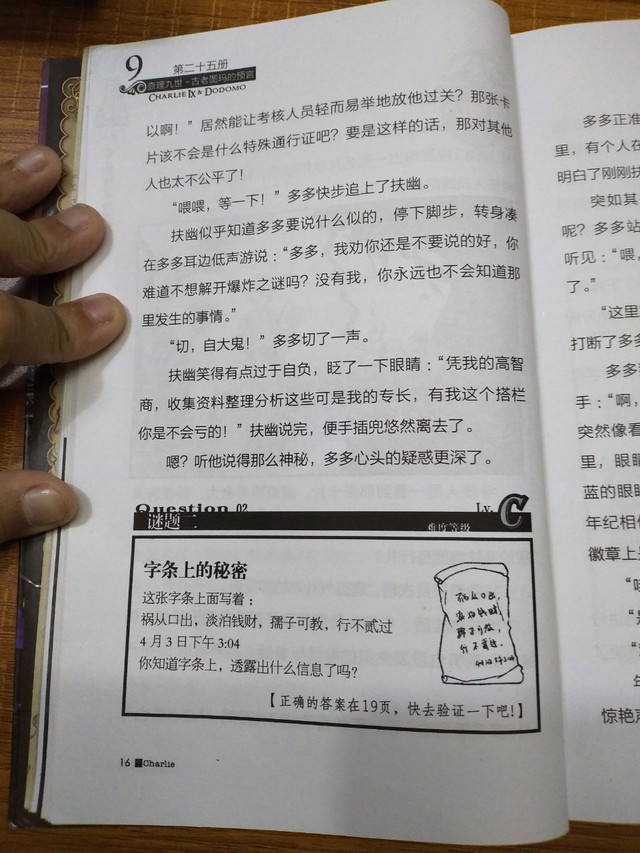 9 第二十五册
查理九世-古老图玛的预言
CHARLIE IX & DODOMO
以啊！”居然能让考核人员轻而易举地放他过关？那张卡
片该不会是什么特殊通行证吧？要是这样的话，那对其他
人也太不公平了！
“喂喂，等一下！”多多快步追上了扶幽。
扶幽似乎知道多多要说什么似的，停下脚步，转身凑
在多多耳边低声游说：“多多，我劝你还是不要说的好，你
难道不想解开爆炸之谜吗？没有我，你永远也不会知道那
里发生的事情。”
“切，自大鬼！”多多切了一声。
扶幽笑得有点过于自负，眨了一下眼睛：“凭我的高智
商，收集资料整理分析这些可是我的专长，有我这个搭栏
你是不会亏的！”扶幽说完，便手插兜悠然离去了。
嗯？听他说得那么神秘，多多心头的疑惑更深了。
Question 02
谜题二
Lv. C
难度等级
字条上的秘密
这张字条上面写着：
祸从口出，淡泊钱财，孺子可教，行不贰过
4月3日下午3:04
你知道字条上，透露出什么信息了吗？
祸从口出，
淡泊钱财
孺子可教，
行不贰过
【正确的答案在19页，快去验证一下吧！】
16 Charlie
多多正准
里，有个人在
明白了刚刚扶
突如其
呢？多多站
听见：“喂，
了。”
“这里
打断了多多
多多
手：“啊，
突然像看
里，眼眼
蓝的眼眼
年纪相
徽章上是
惊艳声